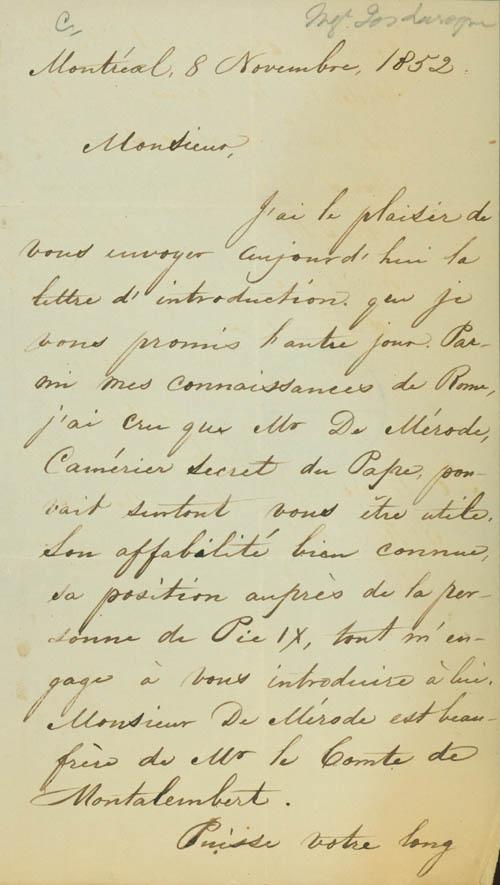 C,
Mgr. Jos Larocque
Montréal, 8 Novembre, 1852.
Monsieur,
J'ai le plaisir de
vous envoyer aujourd'hui la
lettre d'introduction que je
vous promis l'autre jour. Par-
mi mes connaissances de Rome,
j'ai cru que Mr De Mérode,
Camérier secret du Pape, pou-
vait surtout vous être utile.
Son affabilité bien connue,
sa position auprès de la per-
sonne de Pie IX, tout m'en-
gage à vous introduire à lui.
Monsieur De Mérode est beau-
frère de Mr le Comte de
Montalembert.
Puisse votre long